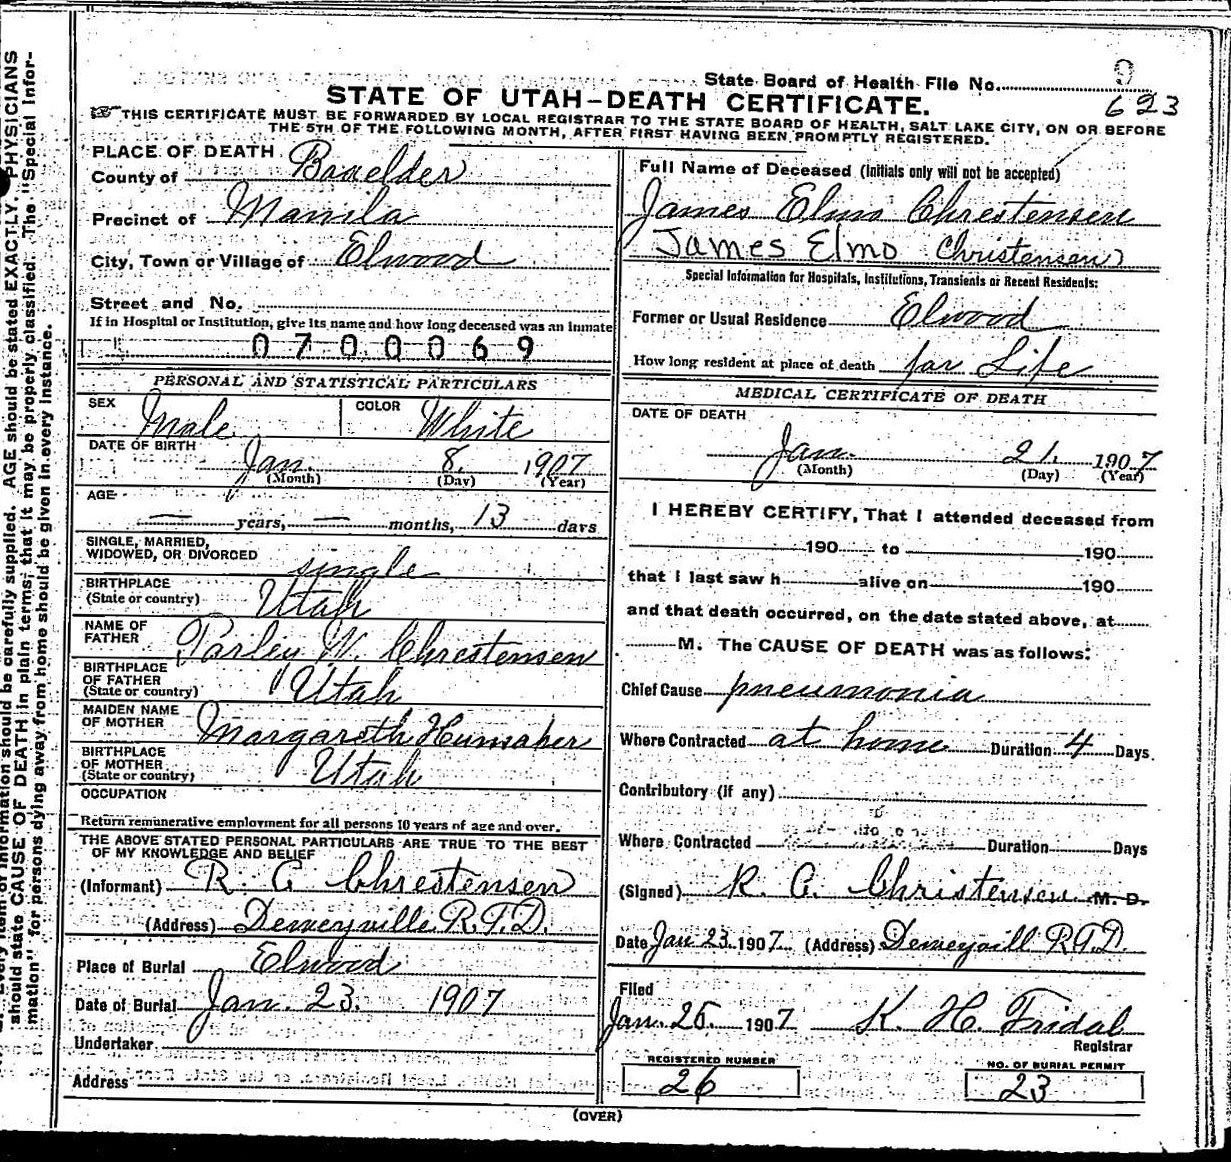 9
State Board of Health File No.
623
STATE OF UTAH–DEATH CERTIFICATE.
THIS CERTIFICATE MUST BE FORWARDED BY LOCAL REGISTRAR TO THE STATE BOARD OF HEALTH, SALT LAKE CITY, ON OR BEFORE
THE 5TH OF THE FOLLOWING MONTH, AFTER FIRST HAVING BEEN PROMPTLY REGISTERED.
PLACE OF DEATH
County of Boxelder
Precinct of Manila
City, Town or Village of Elwood
Street and No.
If in Hospital or Institution, give its name and how long deceased was an inmate
0700069
PERSONAL AND STATISTICAL PARTICULARS
SEX Male COLOR White
DATE OF BIRTH
Jan. 8. 1907
(Month) (Day) (Year)
AGE
— years, — months, 13 days
SINGLE, MARRIED,
WIDOWED, OR DIVORCED single
BIRTHPLACE
(State or country) Utah
NAME OF
FATHER Parley W. Chrestensen
BIRTHPLACE
OF FATHER
(State or country) Utah
MAIDEN NAME
OF MOTHER Margareth Hunsaker
BIRTHPLACE
OF MOTHER
(State or country) Utah
OCCUPATION
Return remunerative employment for all persons 10 years of age and over.
THE ABOVE STATED PERSONAL PARTICULARS ARE TRUE TO THE BEST
OF MY KNOWLEDGE AND BELIEF
(Informant) R C Chrestensen
(Address) Deweyville R.F.D.
Place of Burial Elwood
Date of Burial Jan. 23. 1907
Undertaker
Address
Full Name of Deceased (Initials only will not be accepted)
James Elmo Chrestensen
James Elmo Christensen
Special Information for Hospitals, Institutions, Transients or Recent Residents:
Former or Usual Residence Elwood
How long resident at place of death for Life
MEDICAL CERTIFICATE OF DEATH
DATE OF DEATH
Jan. 21. 1907
(Month) (Day) (Year)
I HEREBY CERTIFY, That I attended deceased from
190 to 190
that I last saw h alive on 190
and that death occurred, on the date stated above, at
M. The CAUSE OF DEATH was as follows:
Chief Cause pneumonia
Where Contracted at home Duration 4 Days.
Contributory (if any)
Where Contracted Duration Days
(Signed) R. C. Christensen M. D.
Date Jan 23 1907 (Address) Deweyvill R.F.D.
Filed
Jan. 26. 1907 K. H. Fridal
Registrar
REGISTERED NUMBER
26
NO. OF BURIAL PERMIT
23
(OVER)
should be carefully supplied. AGE should be stated EXACTLY. PHYSICIANS
should state CAUSE OF DEATH in plain terms, that it may be properly classified. The "Special Infor-
mation" for persons dying away from home should be given in every instance.